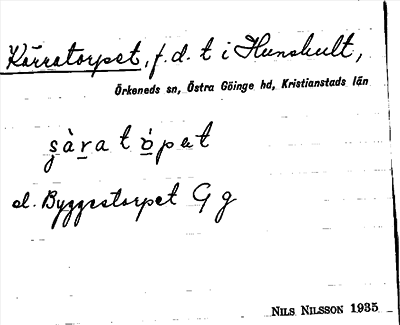 Kärratorpet, f. d. t i Hunshult,
Örkeneds sn, Östra Göinge hd, Kristianstads län
şàra tópət
el. Byggestorpet G g
NILS NILSSON 1935